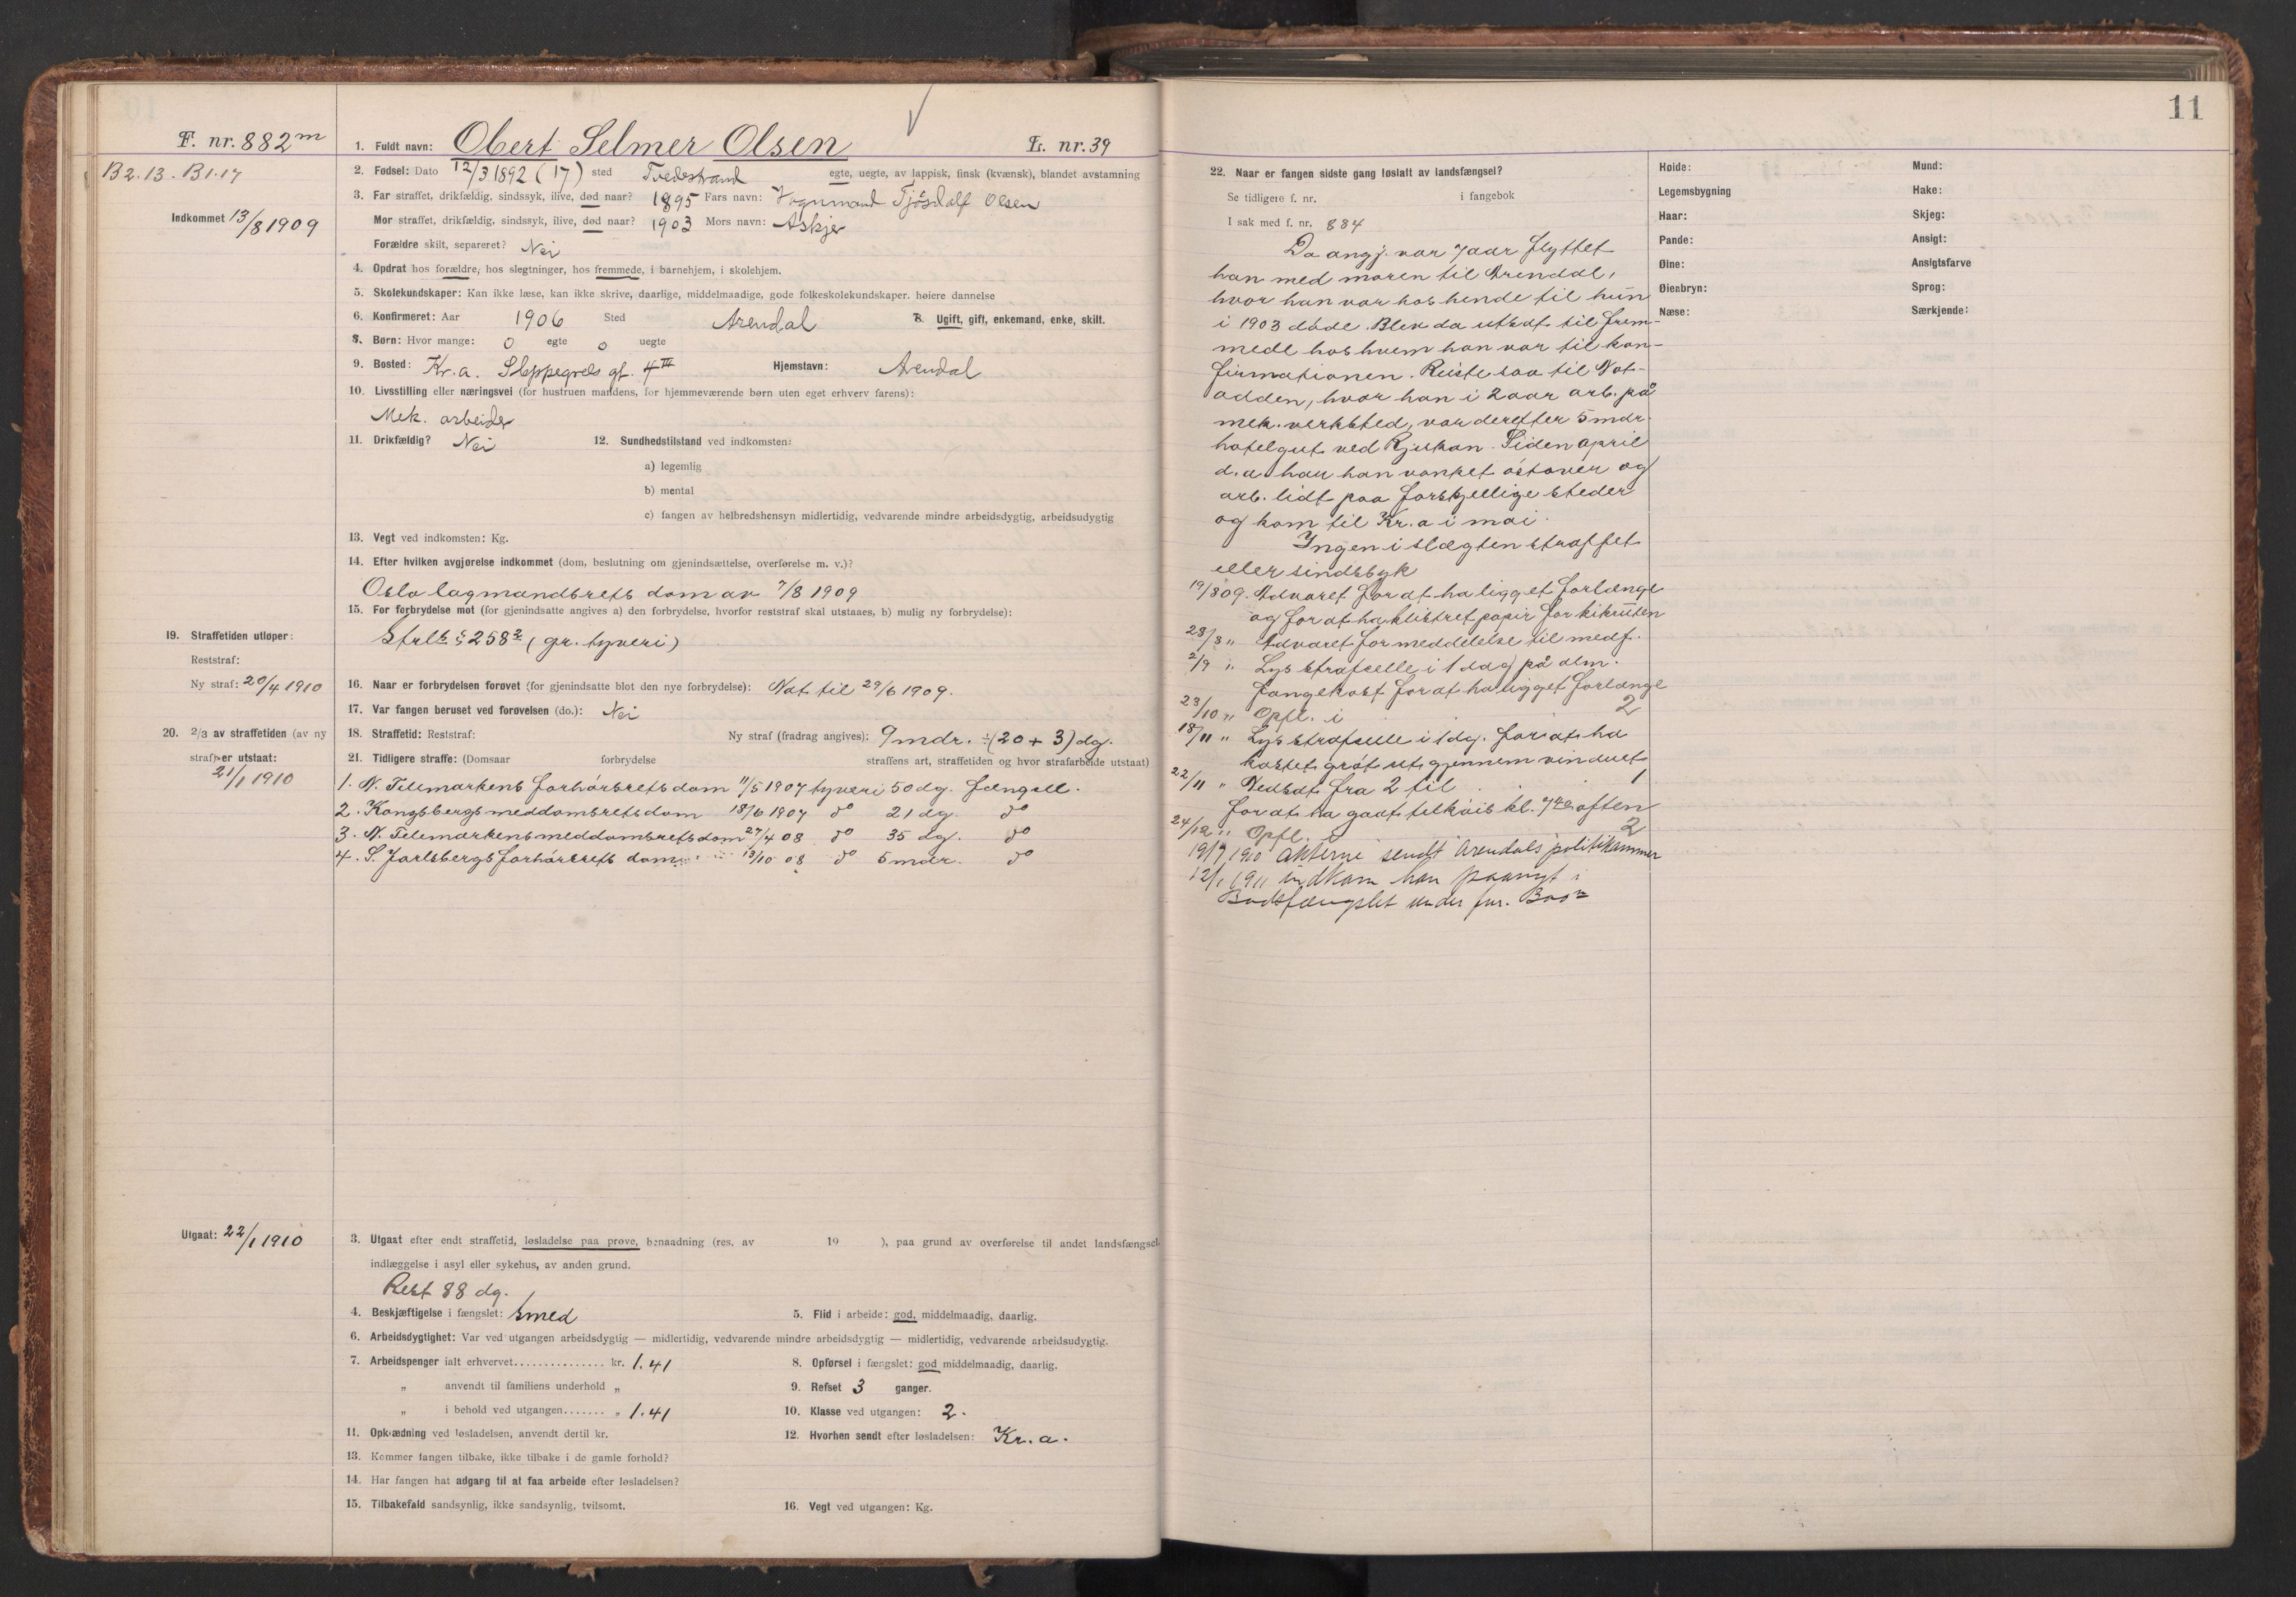 F. nr. 882m
B2.13 - B1.17
Indkommet 13/8 1909
1. Fuldt navn: Obert Selmer Olsen L. nr. 39
2. Fødsel: Dato 12/3 1892 (17) sted Tvedestrand egte, uegte, av lappisk, finsk (kvænsk), blandet avstamning
3. Far straffet, drikfældig, sindssyk, ilive, død naar? 1895 Fars navn: Vognmand Olsen
Mor straffet, drikfældig, sindssyk, ilive, død naar? 1903 Mors navn: Askjer
Forældre skilt, separeret? Nei
4. Opdrat hos forældre, hos slegtninger, hos fremmede, i barnehjem, i skolehjem.
5. Skolekundskaper: Kan ikke læse, kan ikke skrive, daarlige, middelmaadige, gode folkeskolekundskaper. høiere dannelse
6. Konfirmeret: Aar 1906 Sted Arendal 8. Ugift, gift, enkemand, enke, skilt.
8. Børn: Hvor mange: 0 egte 0 uegte
9. Bosted: Kr.a. Sleppegrels gt. 4 III Hjemstavn: Arendal
10. Livsstilling eller næringsvei (for hustruen mandens, for hjemmeværende børn uten eget erhverv farens):
Mek. arbeider
11. Drikfældig? Nei 12. Sundhedstilstand ved indkomsten:
a) legemlig
b) mental
c) fangen av helbredshensyn midlertidig, vedvarende mindre arbeidsdygtig, arbeidsudygtig
13. Vegt ved indkomsten: Kg.
14. Efter hvilken avgjørelse indkommet (dom, beslutning om gjenindsættelse, overførelse m. v.)?
Oslo lagmandsrets dom av 7/8 1909
15. For forbrydelse mot (for gjenindsatte angives a) den forbrydelse, hvorfor reststraf skal utstaaes, b) mulig ny forbrydelse):
Strls § 258 2 (gr. tyveri)
19. Straffetiden utløper:
Reststraf:
Ny straf: 20/4 1910
16. Naar er forbrydelsen forøvet (for gjenindsatte blot den nye forbrydelse): Nat til 29/6 1909.
17. Var fangen beruset ved forøvelsen (do.): Nei
20. 2/3 av straffetiden (av ny
straf) er utstaat:
21/1 1910
18. Straffetid: Reststraf: Ny straf (fradrag angives): 9 mdr. ÷ (20 + 3) dg.
21. Tidligere straffe: (Domsaar forbrydelse straffens art, straffetiden og hvor strafarbeide utstaat)
1. N. Telemarkens forhørsrets dom 11/5 1907 tyveri 50 dg. fængsel.
2. Kongsbergs meddomsrets dom 18/6 1907 do 21 dg. do
3. N. Telemarkens meddomsrets dom 27/4 08 do 35 dg. do
4. S. Jarlsbergs forhørsrets dom 13/10 08 do 5 mdr. do
Utgaat: 22/1 1910
3. Utgaat efter endt straffetid, løsladelse paa prøve, benaadning (res. av 19 ), paa grund av overførelse til andet landsfængsel
indlæggelse i asyl eller sykehus, av anden grund.
Rest 88 dg.
4. Beskjæftigelse i fængslet: Smed 5. Flid i arbeide: god, middelmaadig, daarlig.
6. Arbeidsdygtighet: Var ved utgangen arbeidsdygtig — midlertidig, vedvarende mindre arbeidsdygtig — midlertidig, vedvarende arbeidsudygtig.
7. Arbeidspenger ialt erhvervet............... kr. 1.41 8. Opførsel i fængslet: god middelmaadig, daarlig.
„ anvendt til familiens underhold „ 9. Refset 3 ganger.
„ i behold ved utgangen....... „ 1.41 10. Klasse ved utgangen: 2.
11. Opklædning ved løsladelsen, anvendt dertil kr. 12. Hvorhen sendt efter løsladelsen: Kr.a.
13. Kommer fangen tilbake, ikke tilbake i de gamle forhold?
14. Har fangen hat adgang til at faa arbeide efter løsladelsen?
15. Tilbakefald sandsynlig, ikke sandsynlig, tvilsomt. 16. Vegt ved utgangen: Kg.
11
22. Naar er fangen sidste gang løslatt av landsfængsel?
Se tidligere f. nr. i fangebok
I sak med f. nr. 884
Da angj. var 7 aar flyttet
han med moren til Arendal,
hvor han var hos hende til hun
i 1903 døde. Blev da utsat til frem-
mede hos hvem han var til kon-
firmationen. Reiste saa til Not-
odden, hvor han i 2 aar arb. på
mek. verksted, var derefter 5 mdr.
hotelgut ved Rjukan. Siden april
d.a. har han vanket østover og
arb. lidt paa forskjellige steder
og kom til Kr.a i mai.
Ingen i slægten straffet
eller sindssyk
19/8 09. Advaret for at ha ligget forlænge
og for at ha klistret papir for kikruten
28/8 „ Advaret for meddelelse til medf.
2/9 „ Lys strafcelle i 1 dag på alm.
fangekost for at ha ligget forlænge
23/10 „ Opfl. i 2
18/11 „ Lys strafcelle i 1 dg. for at ha
kastet grøt ut gjennem vinduet
22/11 „ Nedsat fra 2 til 1
for at ha gaat tilkøis kl. 7 aften
24/12 „ Opfl. i 2
19/7 1910 Akterne sendt Arendals politikammer
12/1 1911 indkom han paanyt i
Bodsfængslet under fnr.
Høide:
Legemsbygning
Haar:
Pande:
Øine:
Øienbryn:
Næse:
Mund:
Hake:
Skjeg:
Ansigt:
Ansigtsfarve
Sprog:
Særkjende: